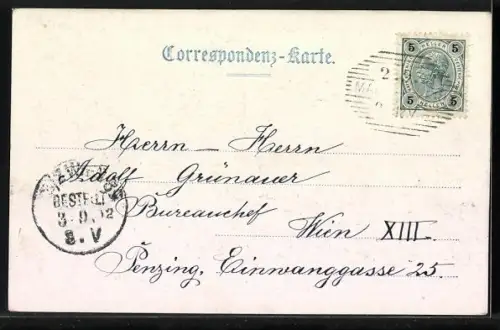 Correspondenz-Karte.
5 HELLER 5
5 HELLER 5
2
Herrn - Herrn
Adolf Grünauer
Bureauchef
Wien XIII.
Penzing, Einwanggasse 25.
BESTELLT
3·9·02
8.V